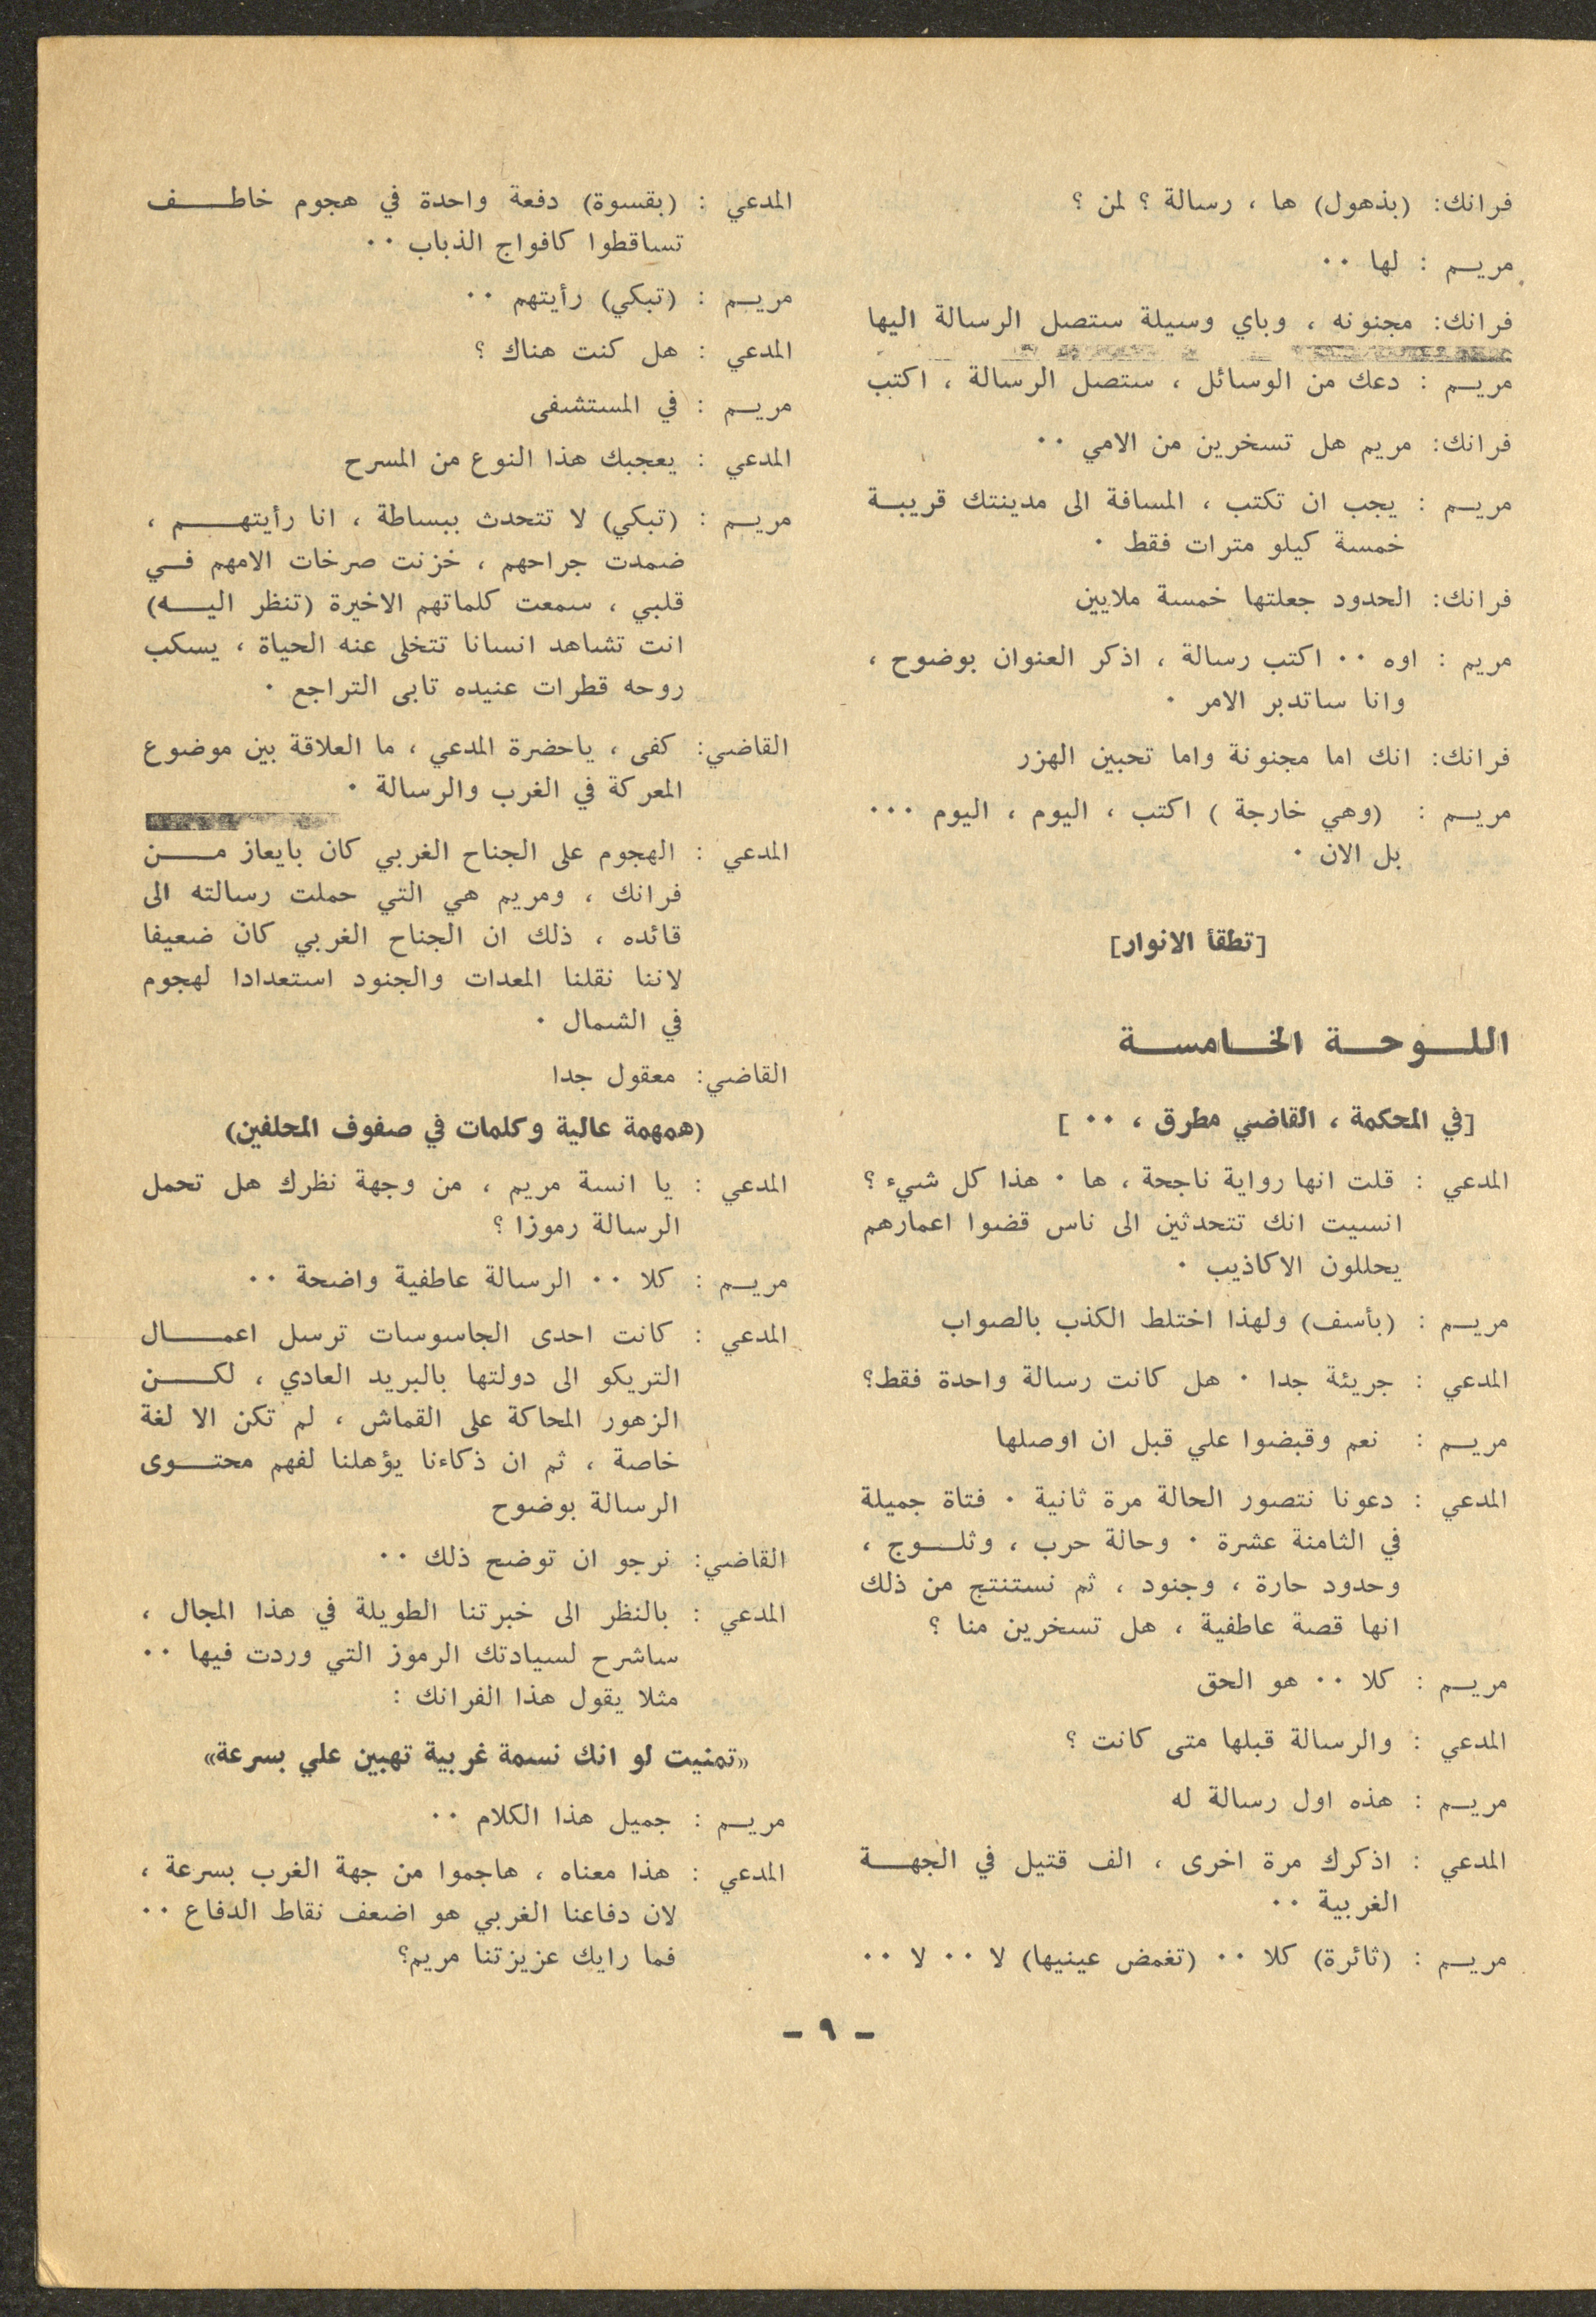 فرانك: (بذهول) ها ، رسالة ؟ لمن ؟
مريم : لها ٠٠
فرانك: مجنونه ، وباي وسيلة ستصل الرسالة اليها
مريم : دعك من الوسائل ، ستصل الرسالة ، اكتب
فرانك: مريم هل تسخرين من الامي ٠٠
مريم : يجب ان تكتب ، المسافة الى مدينتك قريبة
خمسة كيلو مترات فقط ٠
فرانك: الحدود جعلتها خمسة ملايين
مريم : اوه ٠٠ اكتب رسالة ، اذكر العنوان بوضوح ،
وانا ساتدبر الامر ٠
فرانك: انك اما مجنونة واما تحبين الهزر
مريم : (وهي خارجة ) اكتب ، اليوم ، اليوم ٠٠٠
بل الان ٠
[تطقأ الانوار]
اللوحة الخامسة
[في المحكمة ، القاضي مطرق ، ٠٠ ]
المدعي : قلت انها رواية ناجحة ، ها ٠ هذا كل شيء ؟
انسيت انك تتحدثين الى ناس قضوا اعمارهم
يحللون الاكاذيب ٠
مريم : (بأسف) ولهذا اختلط الكذب بالصواب
المدعي : جريئة جدا ٠ هل كانت رسالة واحدة فقط؟
مريم : نعم وقبضوا علي قبل ان اوصلها
المدعي : دعونا نتصور الحالة مرة ثانية ٠ فتاة جميلة
في الثامنة عشرة ٠ وحالة حرب ، وثلوج ،
وحدود حارة ، وجنود ، ثم نستنتج من ذلك
انها قصة عاطفية ، هل تسخرين منا ؟
مريم : كلا ٠٠ هو الحق
المدعي : والرسالة قبلها متى كانت ؟
مريم : هذه اول رسالة له
المدعي : اذكرك مرة اخرى ، الف قتيل في الجهة
الغربية ٠٠
مريم : (ثائرة) كلا ٠٠ (تغمض عينيها) لا ٠٠ لا ٠٠
المدعي : (بقسوة) دفعة واحدة في هجوم خاطف
تساقطوا كافواج الذباب ٠٠
مريم : (تبكي) رأيتهم ٠٠
المدعي : هل كنت هناك ؟
مريم : في المستشفى
المدعي : يعجبك هذا النوع من المسرح
مريم : (تبكي) لا تتحدث ببساطة ، انا رأيتهم ،
ضمدت جراحهم ، خزنت صرخات الامهم في
قلبي ، سمعت كلماتهم الاخيرة (تنظر اليه)
انت تشاهد انسانا تتخلى عنه الحياة ، يسكب
روحه قطرات عنيده تابى التراجع ٠
القاضي: كفى ، ياحضرة المدعي ، ما العلاقة بين موضوع
المعركة في الغرب والرسالة ٠
المدعي : الهجوم على الجناح الغربي كان بايعاز من
فرانك ، ومريم هي التي حملت رسالته الى
قائده ، ذلك ان الجناح الغربي كان ضعيفا
لاننا نقلنا المعدات والجنود استعدادا لهجوم
في الشمال ٠
القاضي: معقول جدا
(همهمة عالية وكلمات في صفوف المحلفين)
المدعي : يا انسة مريم ، من وجهة نظرك هل تحمل
الرسالة رموزا ؟
مريم : كلا ٠٠ الرسالة عاطفية واضحة ٠٠
المدعي : كانت احدى الجاسوسات ترسل اعمال
التريكو الى دولتها بالبريد العادي ، لكن
الزهور المحاكة على القماش ، لم تكن الا لغة
خاصة ، ثم ان ذكاءنا يؤهلنا لفهم محتوى
الرسالة بوضوح
القاضي: نرجو ان توضح ذلك ٠٠
المدعي : بالنظر الى خبرتنا الطويلة في هذا المجال ،
ساشرح لسيادتك الرموز التي وردت فيها ٠٠
مثلا يقول هذا الفرانك :
«تمنيت لو انك نسمة غربية تهبين علي بسرعة»
مريم : جميل هذا الكلام ٠٠
المدعي : هذا معناه ، هاجموا من جهة الغرب بسرعة ،
لان دفاعنا الغربي هو اضعف نقاط الدفاع ٠٠
فما رايك عزيزتنا مريم؟
- ٩ -